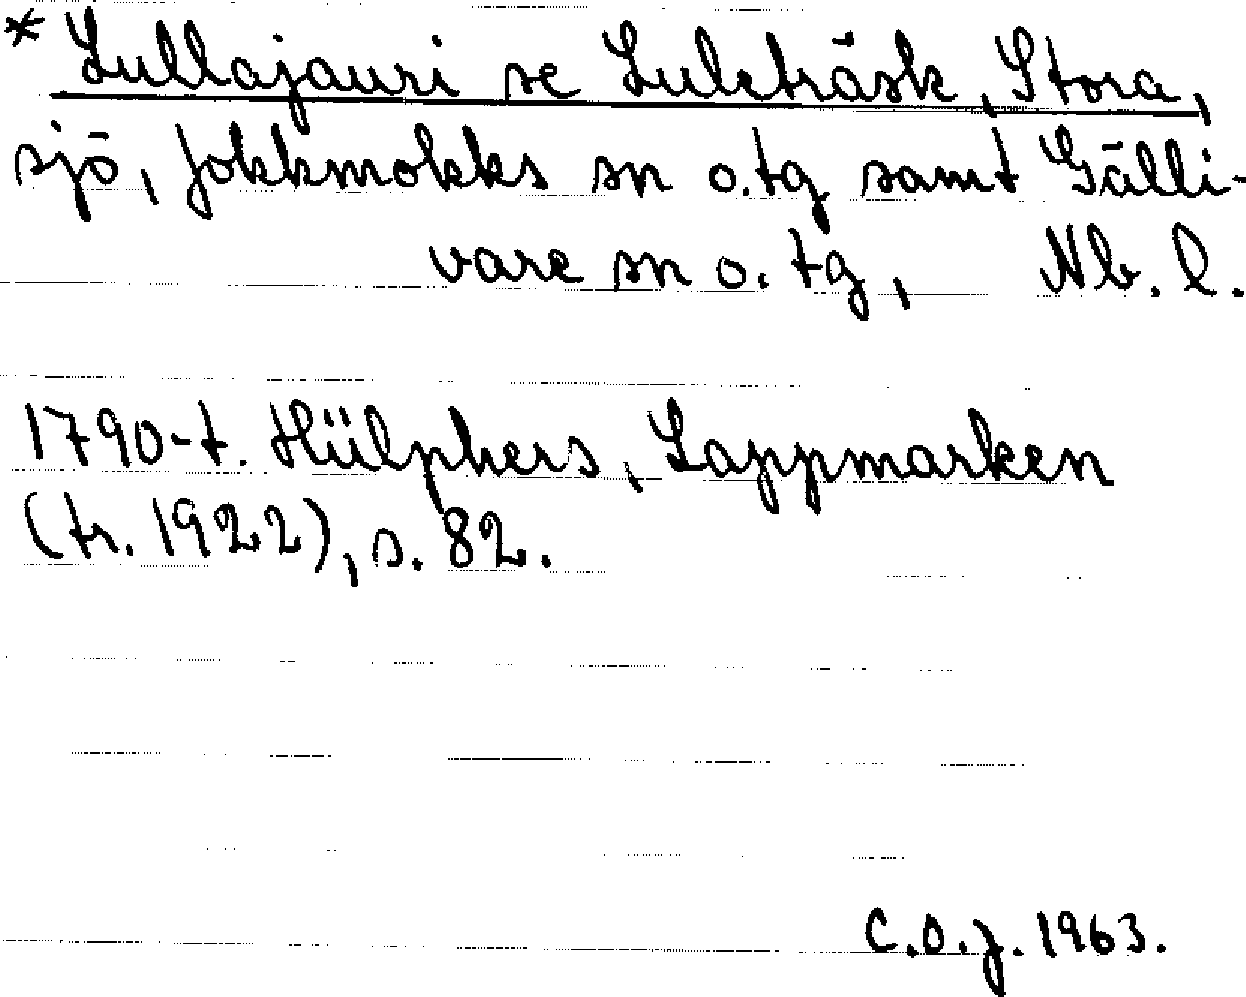 * Lullajauri se Luleträsk, Stora,
sjö, Jokkmokks sn o. tg samt Gälli-
vare sn o. tg, Nb. l.
1790-t. Hülphers, Lappmarken
(tr. 1922), s. 82.
C.O.J. 1963.